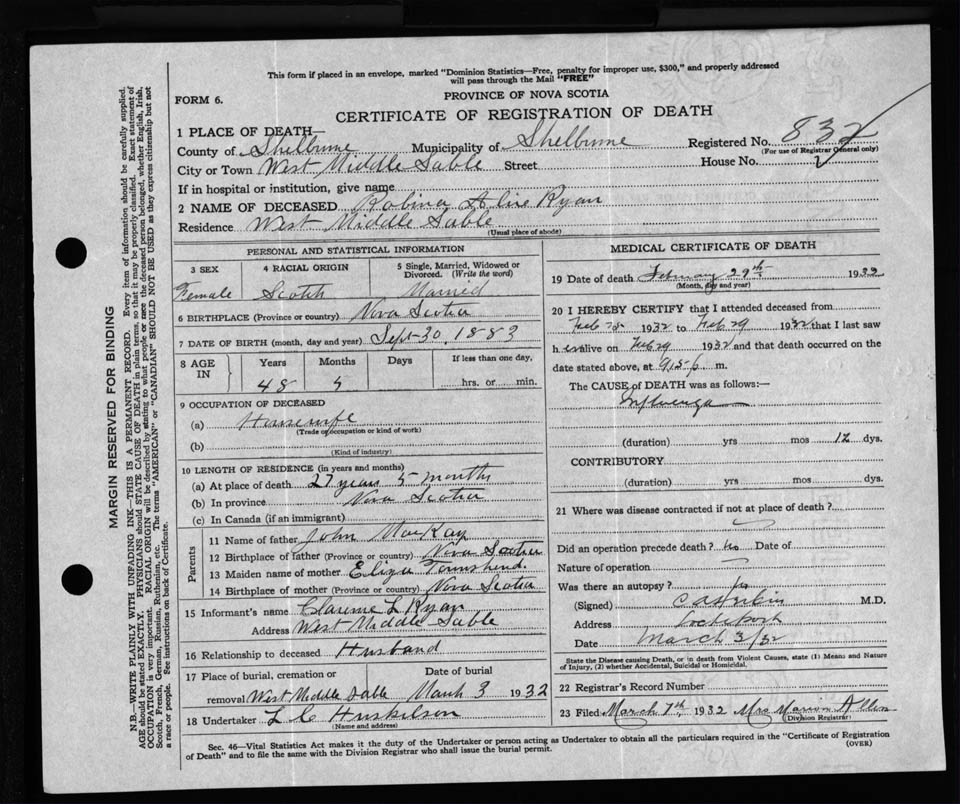 This form if placed in an envelope, marked "Dominion Statistics—Free, penalty for improper use, $300," and properly addressed
will pass through the Mail "FREE"
PROVINCE OF NOVA SCOTIA
FORM 6.
CERTIFICATE OF REGISTRATION OF DEATH
1 PLACE OF DEATH—
County of Shelburne Municipality of Shelburne Registered No. 832
(For use of Registrar General only)
City or Town West Middle Sable Street House No.
If in hospital or institution, give name
2 NAME OF DECEASED Robina Ryan
Residence West Middle Sable
(Usual place of abode)
PERSONAL AND STATISTICAL INFORMATION
3 SEX 4 RACIAL ORIGIN 5 Single, Married, Widowed or
Divorced. (Write the word)
Female Scotch Married
6 BIRTHPLACE (Province or country) Nova Scotia
7 DATE OF BIRTH (month, day and year) Sept 30, 1883
8 AGE IN Years Months Days If less than one day,
48 5 hrs. or min.
9 OCCUPATION OF DECEASED
(a) Housewife
(Trade, occupation or kind of work)
(b)
(Kind of industry)
10 LENGTH OF RESIDENCE (in years and months)
(a) At place of death 27 years 5 months
(b) In province Nova Scotia
(c) In Canada (if an immigrant)
Parents
11 Name of father John MacKay
12 Birthplace of father (Province or country) Nova Scotia
13 Maiden name of mother Eliza Townshend.
14 Birthplace of mother (Province or country) Nova Scotia
15 Informant's name Clarence L Ryan
Address West Middle Sable
16 Relationship to deceased Husband
17 Place of burial, cremation or Date of burial
removal West Middle Sable March 3 1932
18 Undertaker L C Huskilson
(Name and address)
MEDICAL CERTIFICATE OF DEATH
19 Date of death February 29th 1932
(Month, day and year)
20 I HEREBY CERTIFY that I attended deceased from
Feb 1932 to Feb 29 1932 that I last saw
h er alive on Feb 29 1932 and that death occurred on the
date stated above, at m.
The CAUSE of DEATH was as follows:—
Influenza
(duration) yrs mos 12 dys.
CONTRIBUTORY
(duration) yrs mos dys.
21 Where was disease contracted if not at place of death?
Did an operation precede death? No Date of
Nature of operation
Was there an autopsy? No
(Signed) M.D.
Address Lockeport
Date March 3/32
State the Disease causing Death, or in death from Violent Causes, state (1) Means and Nature
of Injury, (2) whether Accidental, Suicidal or Homicidal.
22 Registrar's Record Number
23 Filed March 7th, 1932 Mrs Marion Allen
(Division Registrar)
Sec. 46—Vital Statistics Act makes it the duty of the Undertaker or person acting as Undertaker to obtain all the particulars required in the "Certificate of Registration
of Death" and to file the same with the Division Registrar who shall issue the burial permit.
(OVER)
MARGIN RESERVED FOR BINDING
N.B.—WRITE PLAINLY WITH UNFADING INK.—THIS IS A PERMANENT RECORD. Every item of information should be carefully supplied.
AGE should be stated EXACTLY. PHYSICIANS should STATE CAUSE OF DEATH in plain terms, so that it may be properly classified. Exact statement of
OCCUPATION is very important. RACIAL ORIGIN will be described by stating to what people or race the deceased person belonged, whether English, Irish,
Scotch, French, German, Russian, Ruthenian, etc. The terms "AMERICAN" or "CANADIAN" SHOULD NOT BE USED as they express citizenship but not
a race or people. See instructions on back of Certificate.